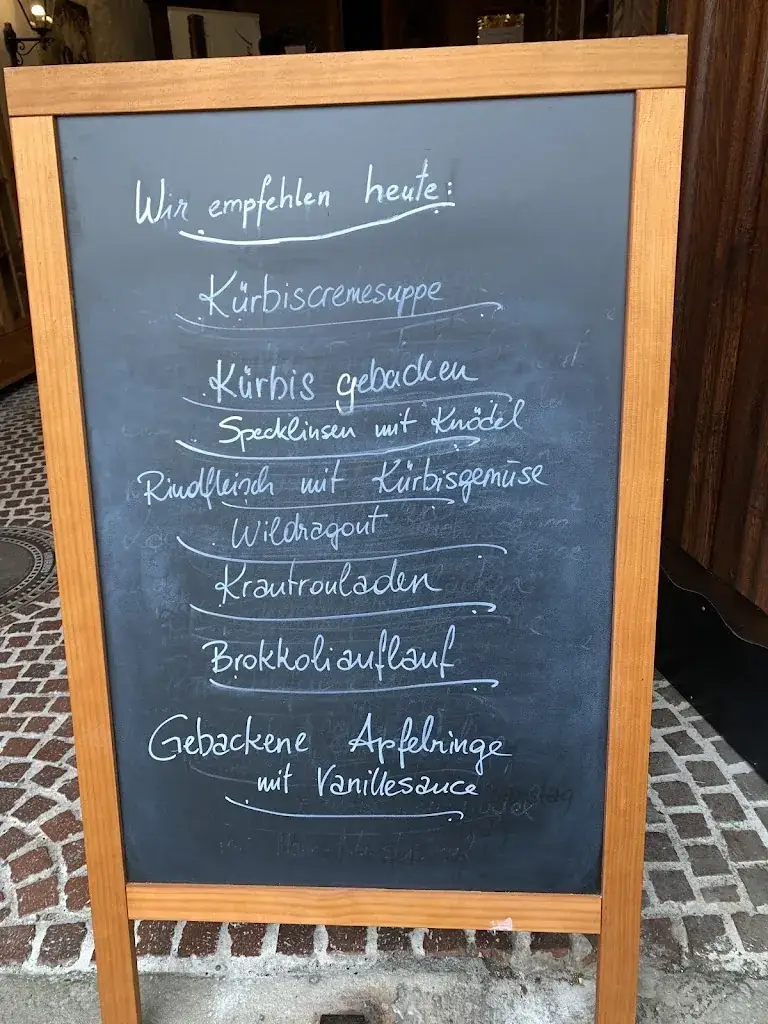 Wir empfehlen heute:
Kürbiscremesuppe
Kürbis gebacken
Specklinsen mit Knödel
Rindfleisch mit Kürbisgemüse
Wildragout
Krautrouladen
Brokkoliauflauf
Gebackene Apfelringe
mit Vanillesauce